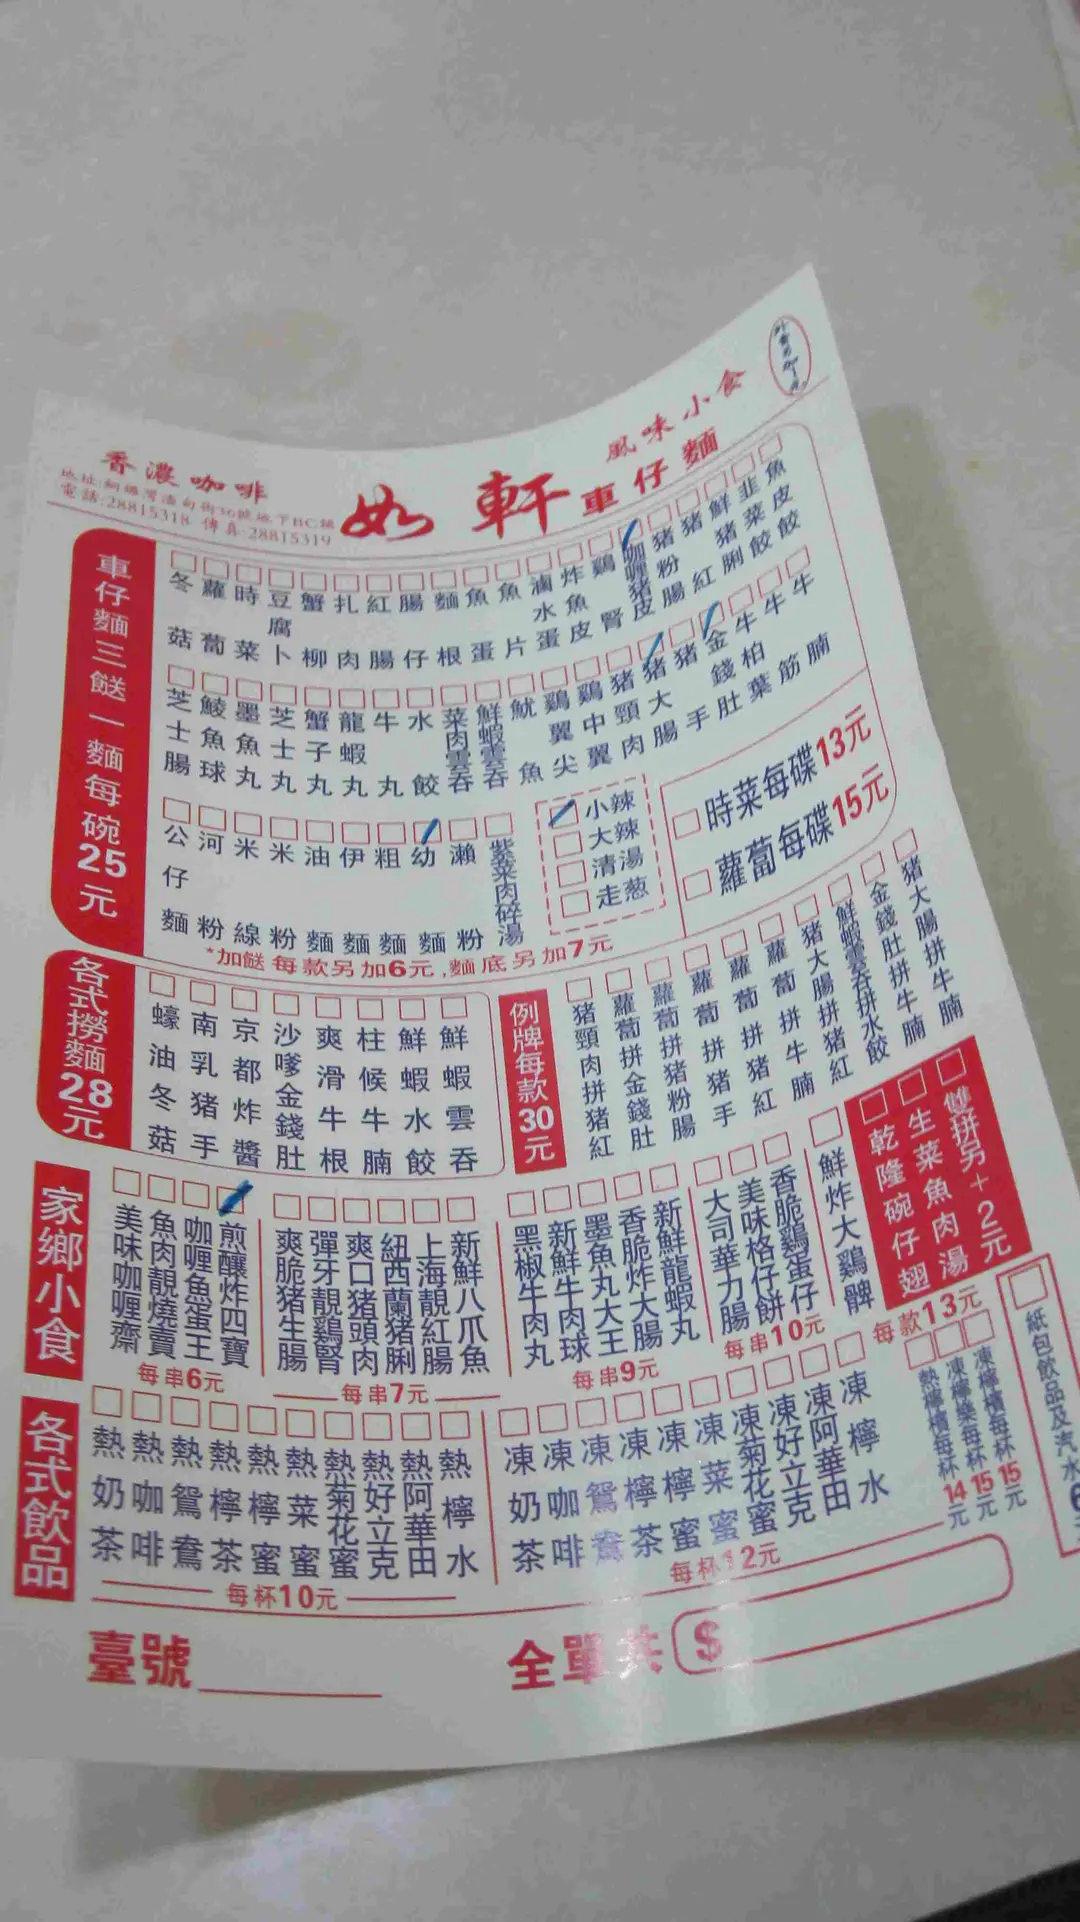 外賣另加1元
香濃咖啡
風味小食
地址:銅鑼灣渣甸街36號地下BC舖
電話:28815318 傳真:28815319
如軒車仔麵
車仔麵三餸一麵每碗25元
冬菇
蘿蔔
時菜
豆腐卜
蟹柳
扎肉
紅腸
腸仔
麵根
魚蛋
魚片
滷水蛋
炸魚皮
鷄腎
咖喱豬皮
豬粉腸
豬紅
鮮豬脷
韭菜餃
魚皮餃
芝士腸
鯪魚球
墨魚丸
芝士丸
蟹子丸
龍蝦丸
牛丸
水餃
菜肉雲吞
鮮蝦雲吞
魷魚
鷄翼尖
鷄中翼
豬頸肉
豬大腸
豬手
金錢肚
牛柏葉
牛筋
牛腩
公仔麵
河粉
米線
米粉
油麵
伊麵
粗麵
幼麵
瀨粉
紫菜肉碎湯
小辣
大辣
清湯
走葱
時菜每碟13元
蘿蔔每碟15元
*加餸每款另加6元,麵底另加7元
各式撈麵28元
蠔油冬菇
南乳豬手
京都炸醬
沙嗲金錢肚
爽滑牛根
柱候牛腩
鮮蝦水餃
鮮蝦雲吞
例牌每款30元
豬頸肉拼豬紅
蘿蔔拼金錢肚
蘿蔔拼豬粉腸
蘿蔔拼豬手
蘿蔔拼豬紅
蘿蔔拼牛腩
豬大腸拼豬紅
鮮蝦雲吞拼水餃
金錢肚拼牛腩
豬大腸拼牛腩
家鄉小食
美味咖喱齋
魚肉靚燒賣
咖喱魚蛋王
煎釀炸四寶
每串6元
爽脆豬生腸
彈牙靚鷄腎
爽口豬頭肉
紐西蘭豬脷
上海靚紅腸
新鮮八爪魚
每串7元
黑椒牛肉丸
新鮮牛肉球
墨魚丸大王
香脆炸大腸
新鮮龍蝦丸
每串9元
大司華力腸
美味格仔餅
香脆鷄蛋仔
每串10元
鮮炸大鷄髀
乾隆碗仔翅
生菜魚肉湯
雙拼另+2元
每款13元
各式飲品
熱奶茶
熱咖啡
熱鴛鴦
熱檸茶
熱檸蜜
熱菜蜜
熱菊花蜜
熱好立克
熱阿華田
熱檸水
每杯10元
凍奶茶
凍咖啡
凍鴛鴦
凍檸茶
凍檸蜜
凍菜蜜
凍菊花蜜
凍好立克
凍阿華田
凍檸水
每杯12元
熱檸檬每杯14元
凍檸樂每杯15元
凍檸檬每杯15元
紙包飲品及汽水6
臺號
全單共 $